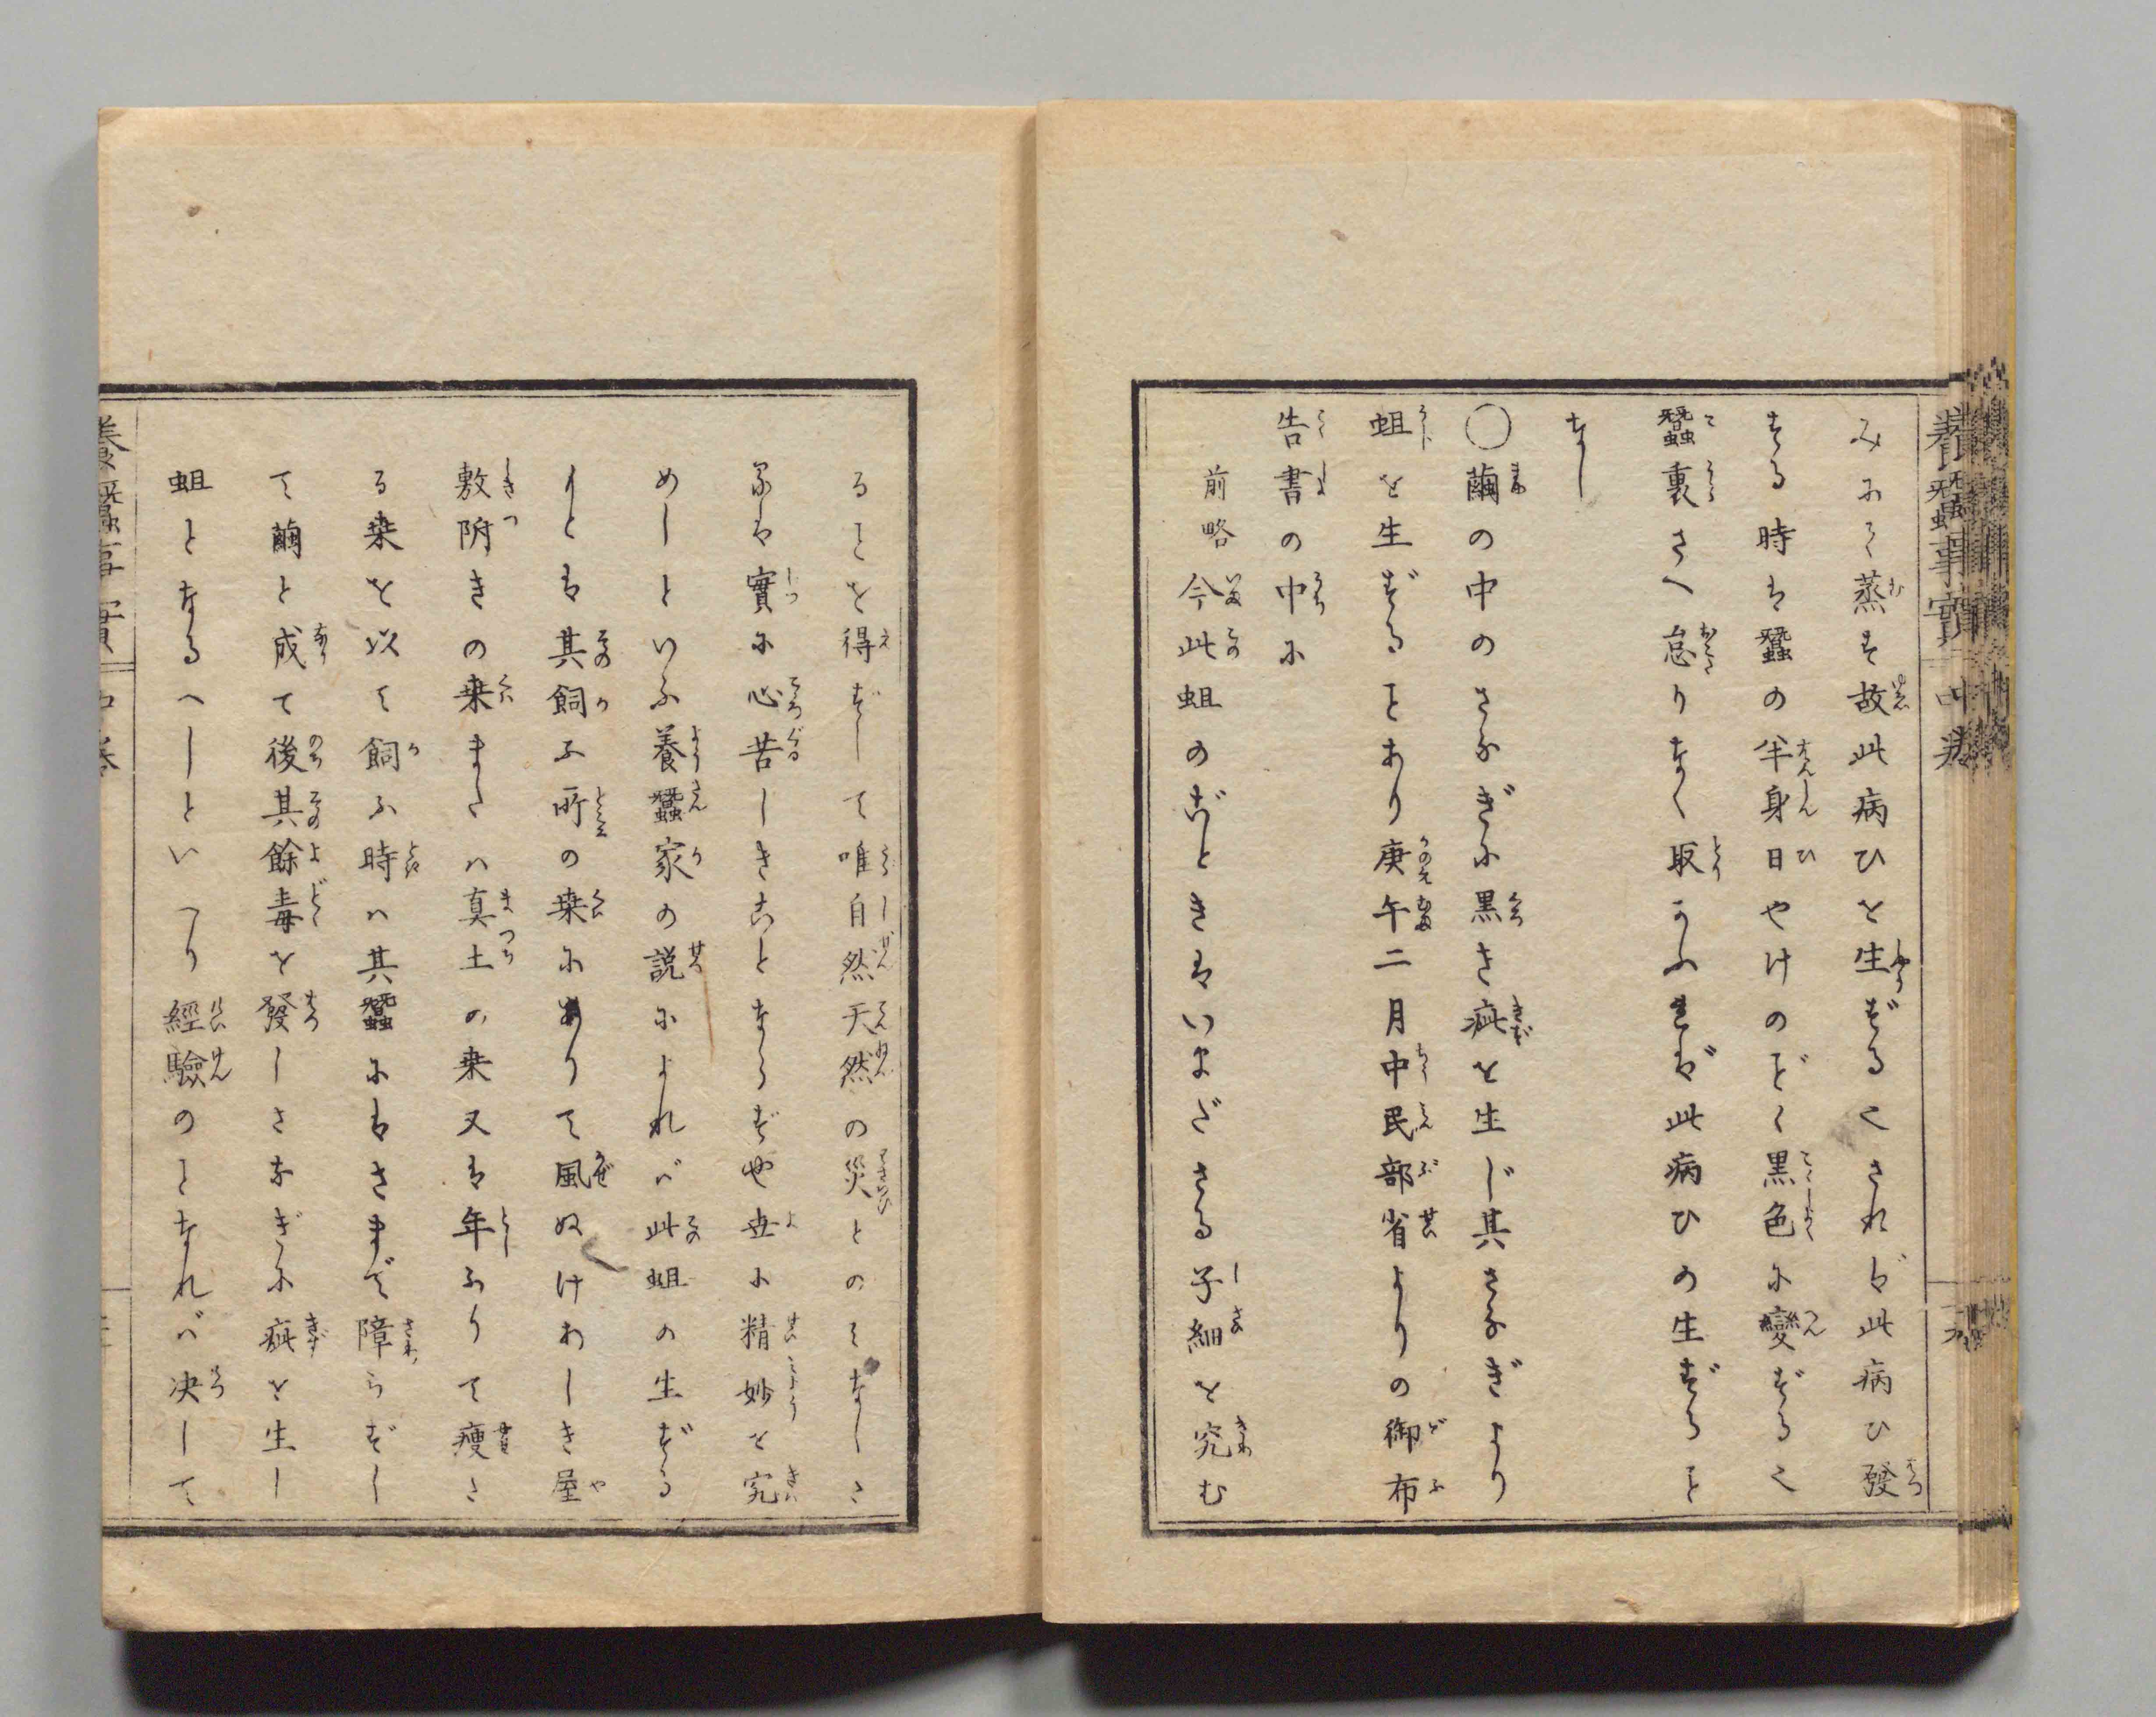 養蠶事實 中巻
みにて蒸す故此病ひを生ずる也されば此病ひ發
する時は蠶の半身日やけのごく黒色に變ずる也
蠶裏さへ怠りなく取かふれば此病ひの生ずるヿ
なし
〇繭の中のさなぎに黒き疵を生じ其さなぎより
蛆を生ずるヿあり庚午二月中民部省よりの御布
告書の中に
前略今此蛆のごときはいまださる子細を究む
るヿを得ずして唯自然天然の災とのミなしさ
るは實に心苦しきことならずや世に精妙を究
めしといふ養蠶家の説によれバ此蛆の生ずる
りとは其飼ふ所の桒にありて風ぬけわしき屋
敷附きの桒またハ真土の桒又は年ふりて痩さ
る桒を以て飼ふ時ハ其蠶にはさまで障らずし
て繭と成て後其餘毒を發しさなぎに疵を生し
蛆となるへしといへり經驗のヿなれバ决して
養蠶事實 中巻